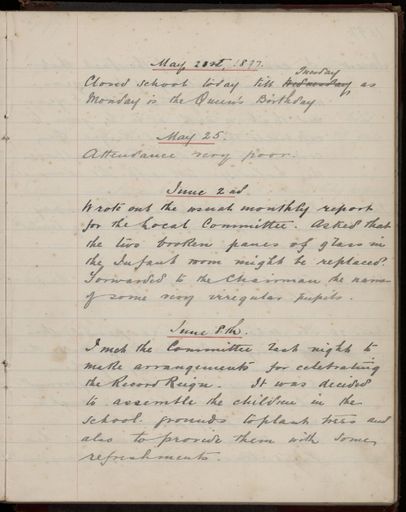 May 21st, 1897.
Tuesday
Closed school today till Wednesday, as
Monday is the Queen's Birthday
May 25.
Attendance very poor.
June 2nd.
Wrote out the usual monthly report
for the Local Committee. Asked that
the two broken panes of glass in
the Infant room might be replaced.
Forwarded to the Chairman the names
of some very irregular pupils.
June 8th.
I met the Committee last night to
make arrangements for celebrating
the Record Reign. It was decided
to assemble the children in the
school grounds to plant trees and
also to provide them with some
refreshments.